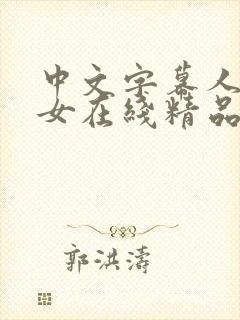 中文字幕人
女在綫精品
郭洪濤